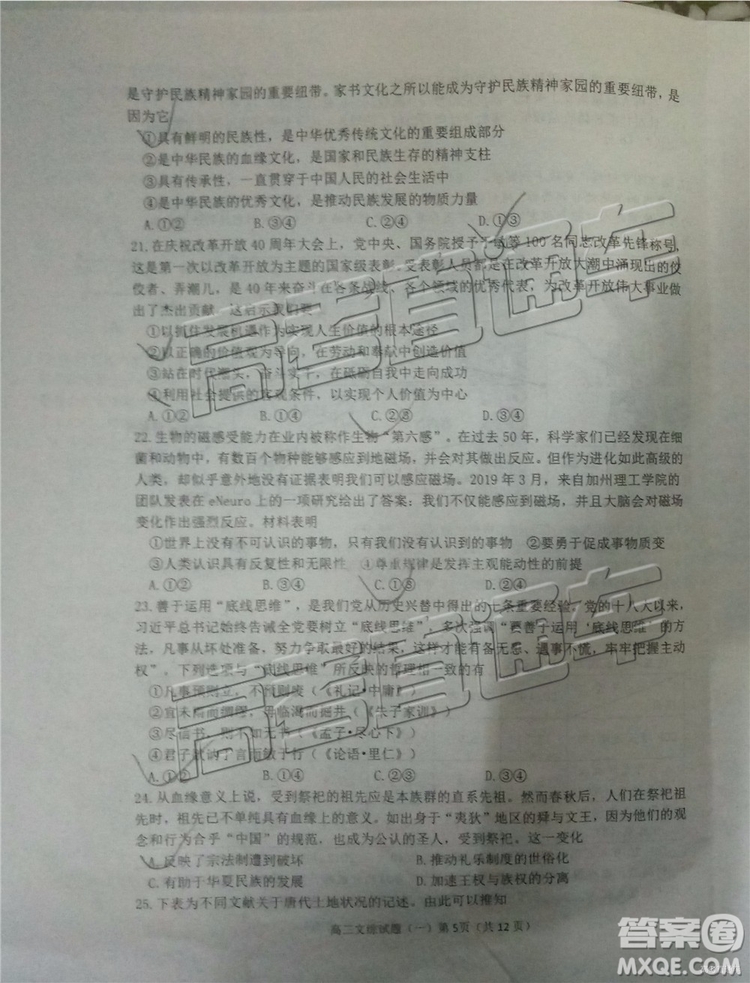 是守护民族精神家园的重要纽带。家书文化之所以能成为守护民族精神家园的重要纽带，是
因为它
①具有鲜明的民族性，是中华优秀传统文化的重要组成部分
②是中华民族的血缘文化，是国家和民族生存的精神支柱
③具有传承性，一直贯穿于中国人民的社会生活中
④是中华民族的优秀文化，是推动民族发展的物质力量
A.①② B.③④ C.②④ D.①③
21.在庆祝改革开放 40 周年大会上，党中央、国务院授予于敏等 100 名同志改革先锋称号，
这是第一次以改革开放为主题的国家级表彰。受表彰人员都是在改革开放大潮中涌现出的佼
佼者、弄潮儿，是 40 年来奋斗在各条战线、各个领域的优秀代表，为改革开放伟大事业做
出了杰出贡献。这启示我们要
①以抓住发展机遇作为实现人生价值的根本途径
②以正确的价值观为导向，在劳动和奉献中创造价值
③站在时代潮头，奋斗实干，在砥砺自我中走向成功
④利用社会提供的客观条件，以实现个人价值为中心
A.①② B.①④ C.②③ D.③④
22.生物的磁感受能力在业内被称作生物“第六感”。在过去 50 年，科学家们已经发现在细
菌和动物中，有数百个物种能够感应到地磁场，并会对此做出反应。作为进化如此高级的
人类，却似乎意外地没有证据表明我们可以感应磁场。2019 年 3 月，来自加州理工学院的
团队发表在 eNeuro 上的一项研究给出了答案：我们不仅能感应到磁场，并且大脑会对磁场
变化作出强烈反应。材料表明
①世界上没有不可认识的事物，只有没有认识到的事物 ②要勇于促成事物质变
③人类认识具有反复性和无限性 ④尊重规律是发挥主观能动性的前提
A.①② B.②④ C.①③ D.③④
23.善于运用“底线思维”，是我们党从历史兴替中得出的七条重要经验。党的十八大以来，
习近平总书记始终告诫全党要树立“底线思维”，多次强调“要善于运用‘底线思维’的方
法，凡事从坏处准备，努力争取最好的结果，这样才能有备无患、遇事不慌，牢牢把握主动
权”。下列选项与“底线思维”所反映的哲理相一致的有
①凡事预则立，不预则废（《礼记·中庸》）
②宜未雨而绸缪，毋临渴而掘井（《朱子家训》）
③尽信书，则不如无书（《孟子·尽心下》）
④君子欲讷于言而敏于行（《论语·里仁》）
A.①② B.①④ C.②③ D.③④
24.从血缘意义上说，受到祭祀的祖先应是本族群的直系先祖。然而春秋后，人们在祭祀祖
先时，基本已不单纯具有血缘意义了。出身于“夷狄”地区的舜与文王，因为他们的观念
和行为合乎“中国”的规范，也成为公认的圣人，受到祭祀。这一变化
A.反映了宗法制遭到破坏 B.推动礼乐制度的世俗化
C.有助于华夏民族的发展 D.加速王权与族权的分离
25.下表为不同文献关于唐代土地状况的记述。由此可以推知
高二文综试题（一）第 5页（共 12 页）
高考直通车
高考直通车
答案圈
MXQE.COM